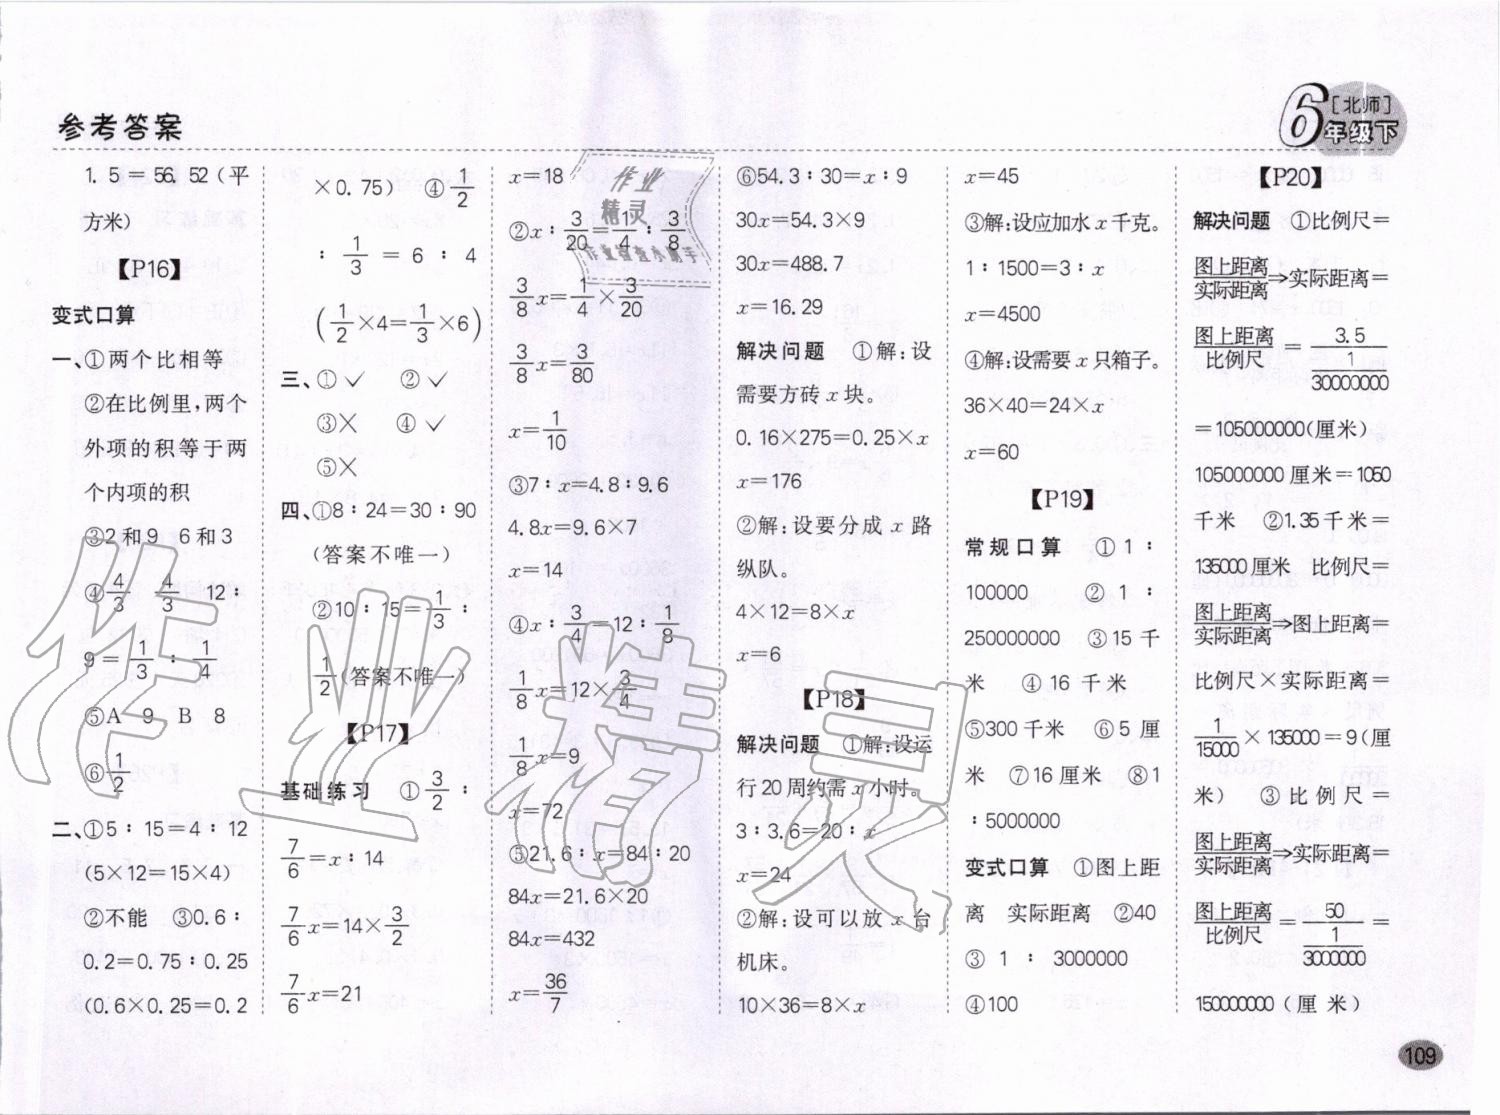 参考答案
6 [北师]
年级下
1.5=56.52(平
方米)
【P16】
变式口算
一、①两个比相等
②在比例里,两个
外项的积等于两
个内项的积
③2和9 6和3
④4/3 4/3 12:
9=1/3:1/4
⑤A 9 B 8
⑥1/2
二、①5:15=4:12
(5×12=15×4)
②不能 ③0.6:
0.2=0.75:0.25
(0.6×0.25=0.2
×0.75) ④1/2
:1/3=6:4
(1/2×4=1/3×6)
三、①✓ ②✓
③× ④✓
⑤×
四、①8:24=30:90
(答案不唯一)
②10:15=1/3:
1/2(答案不唯一)
【P17】
基础练习 ①3/2:
7/6=x:14
7/6x=14×3/2
7/6x=21
x=18
②x:3/20=1/4:3/8
3/8x=1/4×3/20
3/8x=3/80
x=1/10
③7:x=4.8:9.6
4.8x=9.6×7
x=14
④x:3/4=12:1/8
1/8x=12×3/4
1/8x=9
x=72
⑤21.6:x=84:20
84x=21.6×20
84x=432
x=36/7
⑥54.3:30=x:9
30x=54.3×9
30x=488.7
x=16.29
解决问题 ①解:设
需要方砖x块。
0.16×275=0.25×x
x=176
②解:设要分成x路
纵队。
4×12=8×x
x=6
【P18】
解决问题 ①解:设运
行20周约需x小时。
3:3.6=20:x
x=24
②解:设可以放x台
机床。
10×36=8×x
x=45
③解:设应加水x千克。
1:1500=3:x
x=4500
④解:设需要x只箱子。
36×40=24×x
x=60
【P19】
常规口算 ①1:
100000 ②1:
250000000 ③15千
米 ④16千米
⑤300千米 ⑥5厘
米 ⑦16厘米 ⑧1
:5000000
变式口算 ①图上距
离 实际距离 ②40
③1:3000000
④100
【P20】
解决问题 ①比例尺=
图上距离/实际距离→实际距离=
图上距离/比例尺=3.5/(1/30000000)
=105000000(厘米)
105000000厘米=1050
千米 ②1.35千米=
135000厘米 比例尺=
图上距离/实际距离→图上距离=
比例尺×实际距离=
1/15000×135000=9(厘
米) ③比例尺=
图上距离/实际距离→实际距离=
图上距离/比例尺=50/(1/3000000)=
150000000(厘米)
109
作业
精灵
作业精灵